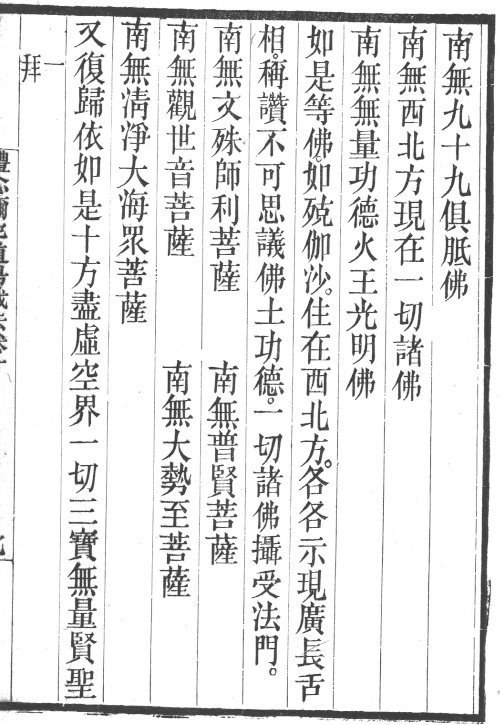 南無九十九俱胝佛
南無西北方現在一切諸佛
南無無量功德火王光明佛
如是等佛。如殑伽沙。住在西北方。各各示現廣長舌
相。稱讚不可思議佛土功德。一切諸佛攝受法門。
南無文殊師利菩薩　南無普賢菩薩
南無觀世音菩薩　南無大勢至菩薩
南無淸淨大海眾菩薩
又復歸依如是十方盡虛空界一切三寶無量賢聖
一拜